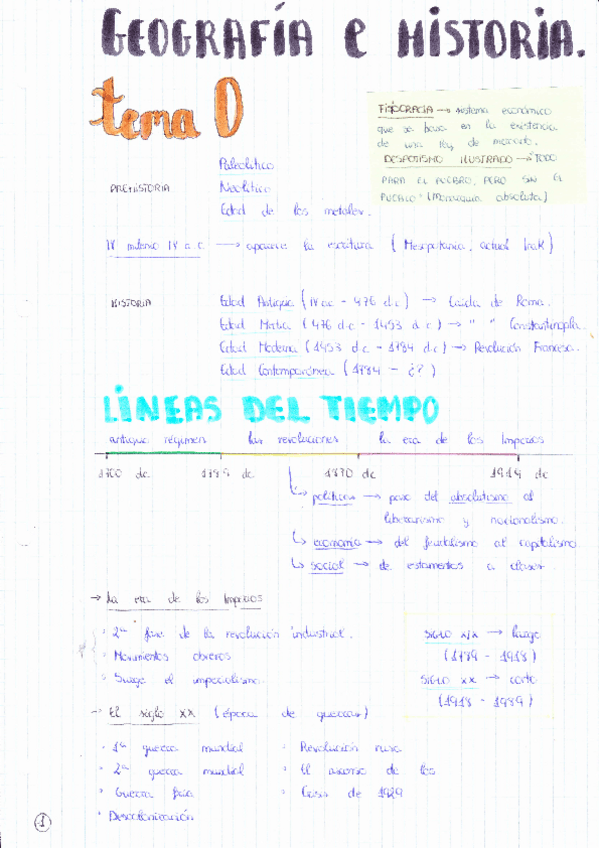 GEOGRAFÍA E HISTORIA.
tema 0
FISIOCRACIA → sistema económico
que se basa en la existencia
de una ley de mercado.
DESPOTISMO ILUSTRADO → "TODO
PARA EL PUEBLO, PERO SIN EL
PUEBLO" (Monarquía absoluta)
Paleolítico
PREHISTORIA Neolítico
Edad de los metales.
IV milenio IV a.c. → aparece la escritura (Mesopotamia, actual Irak)
HISTORIA Edad Antigua (IV a.c - 476 d.c) → Caída de Roma.
Edad Media (476 d.c - 1453 d.c) → " " Constantinopla.
Edad Moderna (1453 d.c - 1789 d.c) → Revolución Francesa.
Edad Contemporánea (1789 - ¿?)
LÍNEAS DEL TIEMPO
antiguo régimen las revoluciones la era de los Imperios
1700 dc 1789 dc 1870 dc 1914 dc
↳ política → paso del absolutismo al
liberalismo y nacionalismo.
↳ economía → del feudalismo al capitalismo
↳ social → de estamentos a clases.
→ La era de los Imperios
· 2ª fase de la revolución industrial.
· Movimientos obreros
· Surge el imperialismo
SIGLO XIX → largo
(1789 - 1918)
SIGLO XX → corto
(1918 - 1989)
→ El siglo XX (época de guerras)
· 1ª guerra mundial · Revolución rusa
· 2ª guerra mundial · El ascenso de los
· Guerra fría · Crisis de 1929
· Descolonización
1